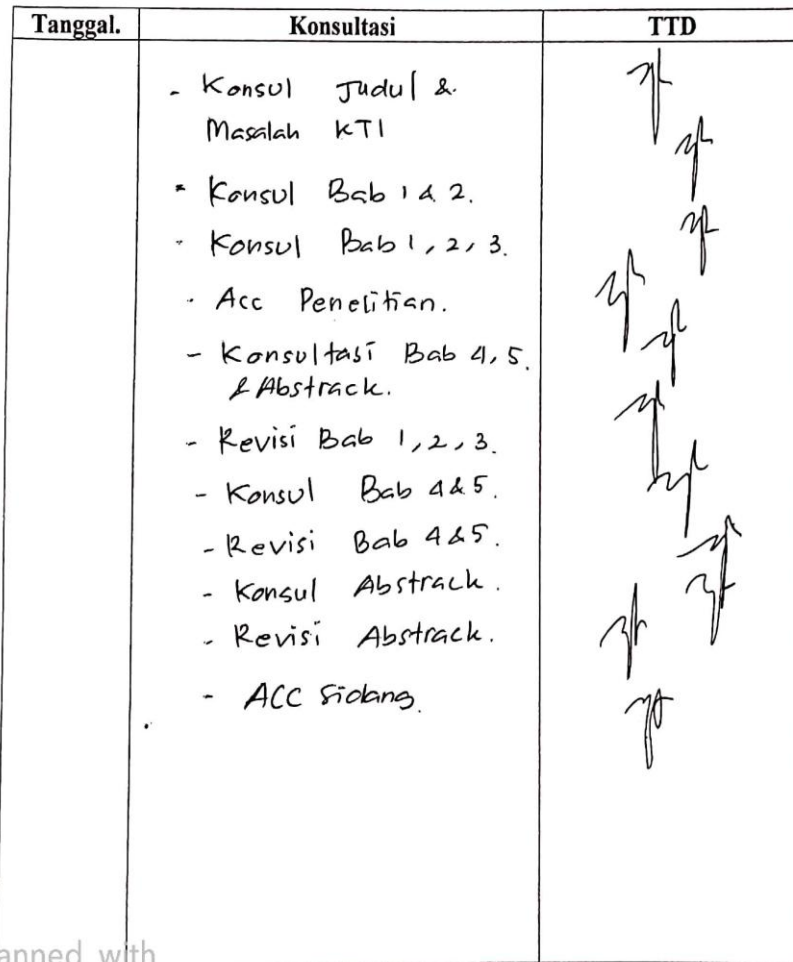 Tanggal. Konsultasi TTD
- Konsul Judul &
Masalah KTI
- Konsul Bab 1 & 2.
- Konsul Bab 1, 2, 3.
- Acc Penelitian.
- Konsultasi Bab 4, 5.
& Abstrack.
- Revisi Bab 1, 2, 3.
- Konsul Bab 4 & 5.
- Revisi Bab 4 & 5.
- Konsul Abstrack.
- Revisi Abstrack.
- ACC Sidang.
anned with